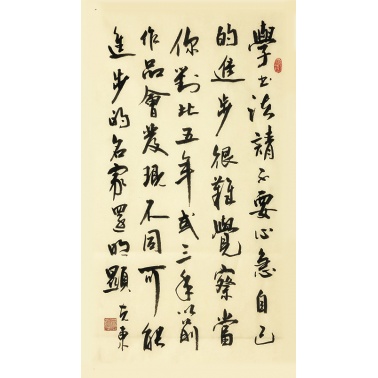 學書法請不要心急自己
的進步很難覺察當
你對比五年或三年以前
作品會發現不同可能
進步的名家還明顯
克東